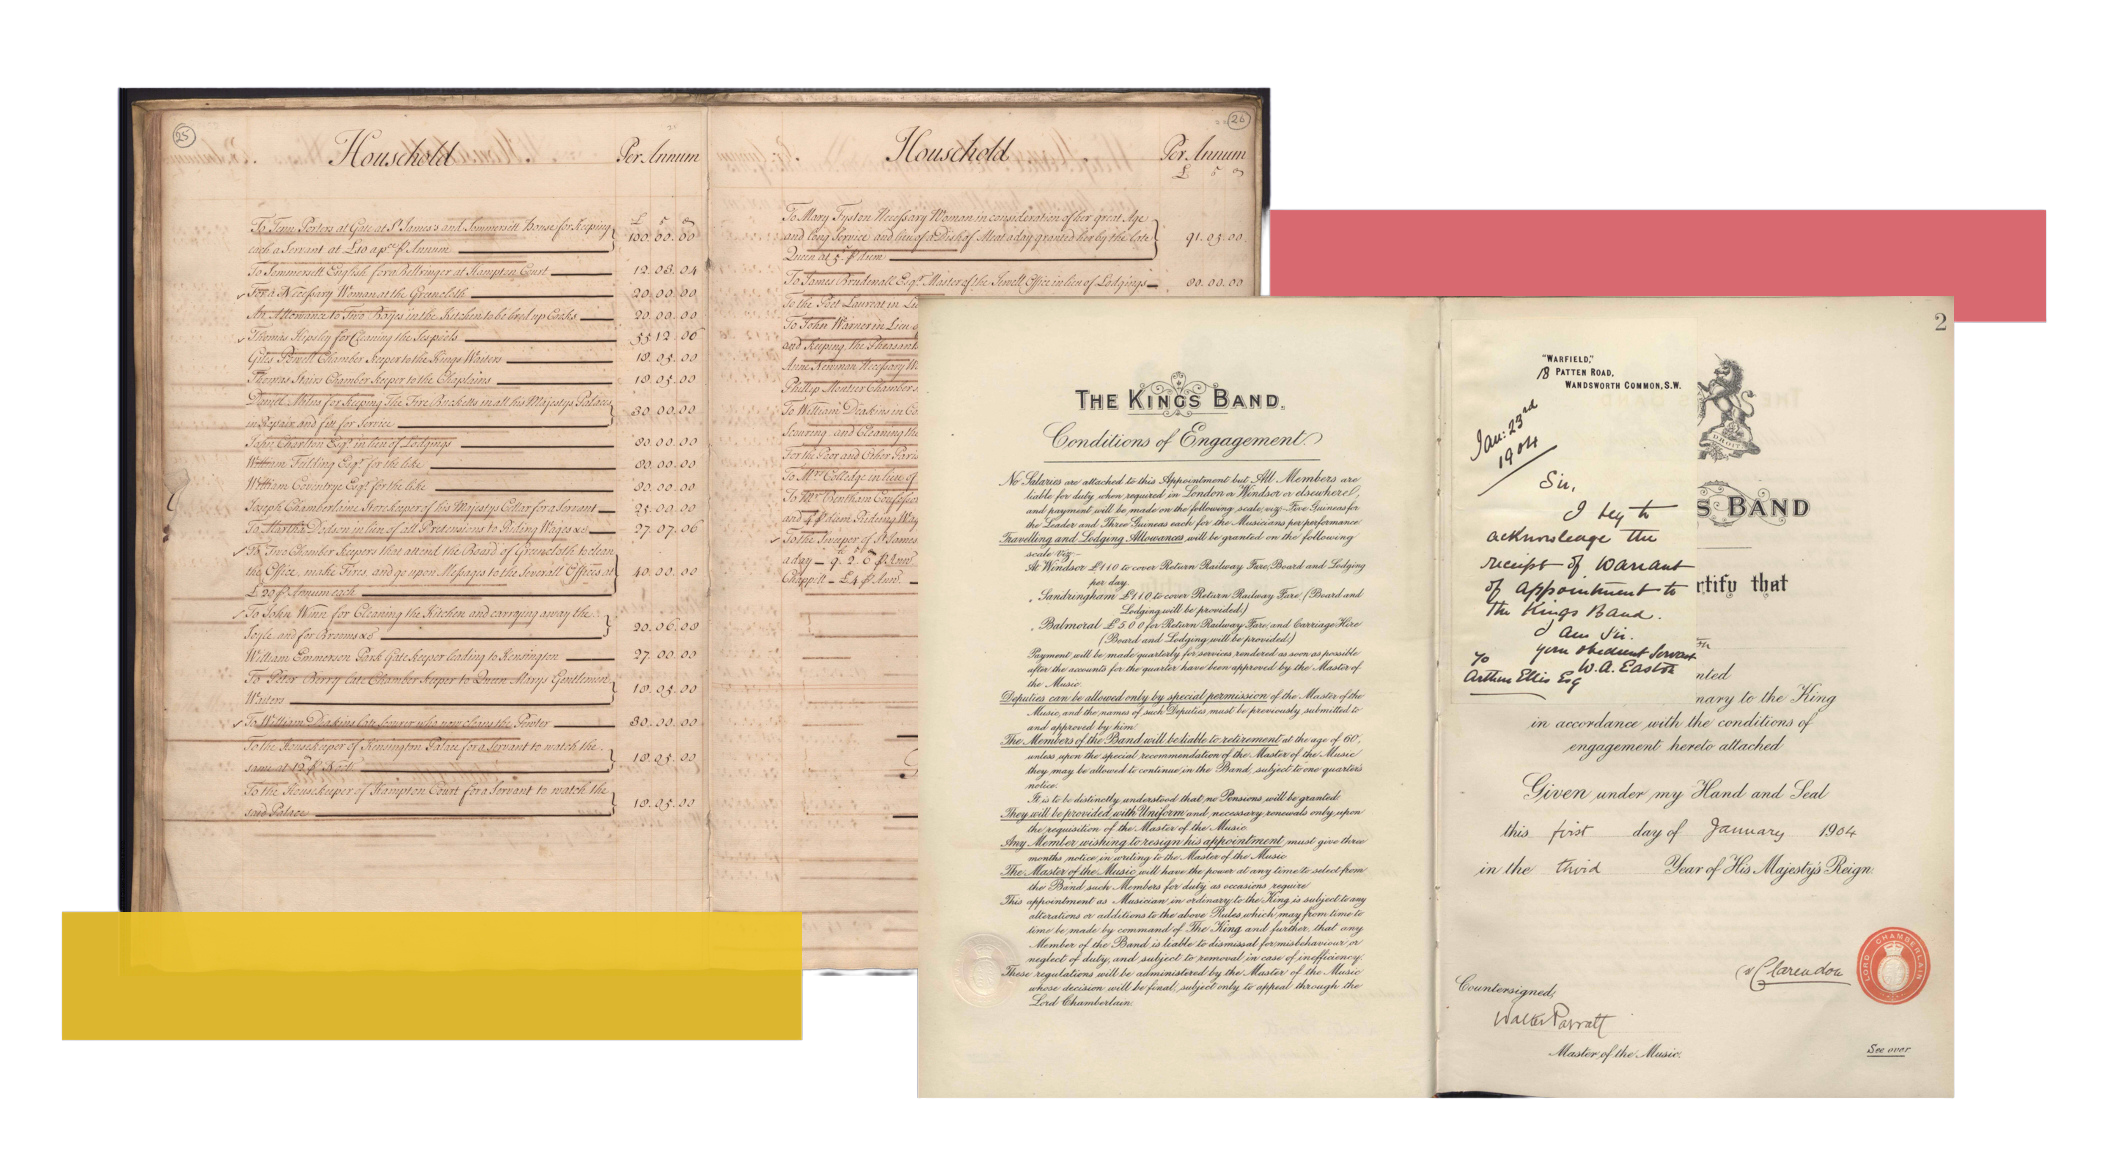 25
Household
Per Annum
£ s d
To Tenn Porters at Gate at St James's and Sommersett House for keeping
each a Servant at £10 a ps p Annum
100.00.00
To Sommersett English for a Bellringer at Hampton Court
12.03.04
For a Necessary Woman at the Greencloth
20.00.00
An Allowance to Two Boyes in the Kitchen to be bred up Cooks
20.00.00
Thomas for Cleaning the
55.12.06
Giles Powell Chamber Keeper to the Kings Waiters
18.05.00
Thomas Stairs Chamber Keeper to the Chaplains
18.05.00
Daniell Milns for keeping The Fire Bucketts in all his Majestys Palaces
in Repair and fitt for Service
30.00.00
John Charlton Esqr. in lieu of Lodgings
80.00.00
William Feilding Esqr. for the like
80.00.00
William Coventrye Esqr. for the like
80.00.00
Joseph Chamberlaine Storekeeper of his Majestys Cellar for a Servant
25.00.00
To Martha Dodson in lieu of all Pretensions to Riding Wages &c
27.07.06
To Two Chamber Keepers that attend the Board of Greencloth to clean
the Office, make Fires, and go upon Messages to the severall Offices at
£20 p Annum each
40.00.00
To John Winn for Cleaning the Kitchen and carrying away the
Soyle, and for Brooms &c
20.06.08
William Emmerson Park Gate keeper leading to Kensington
27.00.00
To Peter Berry late Chamber Keeper to Queen Marys Gentlemen
Waiters
18.05.00
To William Deakins late Scourer who now cleans the Pewter
30.00.00
To the Housekeeper of Kensington Palace for a Servant to watch the
same at 12d p Night
18.05.00
To the Housekeeper of Hampton Court for a Servant to watch the
said Palace
18.05.00
26
Household
Per Annum
£ s d
To Mary Tyston Necessary Woman in consideration of her great Age
and long Service and lieu of a Dish of Meat a day granted her by the late
Queen at 5s p diem
91.05.00
To James Brudenall Esqr. Master of the Jewell Office in lieu of Lodgings
80.00.00
To the Poet Laureat in Lie
To John Warner in Lieu o
and Keeping the Pheasant
Anne Newman Necessary W
Phillip Chamber
To William Deakins in Co
Scouring, and Cleaning the
For the Poor and Other
To Mrs Colledge in lieu of
To Mr Bentham Confessio
and 4s p diem Riding Wag
To the Sweeper of St James
THE KING'S BAND.
Conditions of Engagement.
No Salaries are attached to this Appointment but All Members are
liable for duty when required in London or Windsor or elsewhere,
and payment will be made on the following scale, viz: Five Guineas for
the Leader and Three Guineas each for the Musicians per performance
Travelling and Lodging Allowances will be granted on the following
scale viz:—
At Windsor £1 1 0 to cover Return Railway Fare, Board and Lodging
per day.
" Sandringham £1 1 0 to cover Return Railway Fare. (Board and
Lodging will be provided.)
" Balmoral £5 0 0 for Return Railway Fare, and Carriage Hire
(Board and Lodging will be provided.)
Payment will be made quarterly for services rendered as soon as possible
after the accounts for the quarter have been approved by the Master of
the Music.
Deputies can be allowed only by special permission of the Master of the
Music, and the names of such Deputies must be previously submitted to
and approved by him.
The Members of the Band will be liable to retirement at the age of 60,
unless upon the special recommendation of the Master of the Music
they may be allowed to continue in the Band, subject to one quarter's
notice.
It is to be distinctly understood that no Pensions will be granted
They will be provided with Uniform and necessary renewals only upon
the requisition of the Master of the Music
Any Member wishing to resign his appointment must give three
months notice in writing to the Master of the Music
The Master of the Music will have the power at any time to select from
the Band such Members for duty as occasions require
This appointment as Musician in ordinary to the King is subject to any
alterations or additions to the above Rules, which may from time to
time be made by command of The King and further, that any
Member of the Band is liable to dismissal for misbehaviour or
neglect of duty, and subject to removal in case of inefficiency.
These regulations will be administered by the Master of the Music
whose decision will be final, subject only to appeal through the
Lord Chamberlain.
2
"WARFIELD,"
18 PATTEN ROAD,
WANDSWORTH COMMON, S.W.
Jan: 23rd
1904
Sir,
I beg to
acknowledge the
receipt of Warrant
of appointment to
The Kings Band.
I am Sir.
your obedient Servant
W. A. Easton
To
Arthur Ellis Esq
DROIT
S BAND
rtify that
nted
nary to the King
in accordance with the conditions of
engagement hereto attached
Given under my Hand and Seal
this first day of January 1904
in the third Year of His Majesty's Reign.
Clarendon
LORD CHAMBERLAIN
Countersigned,
Walter Parratt
Master of the Music.
See over